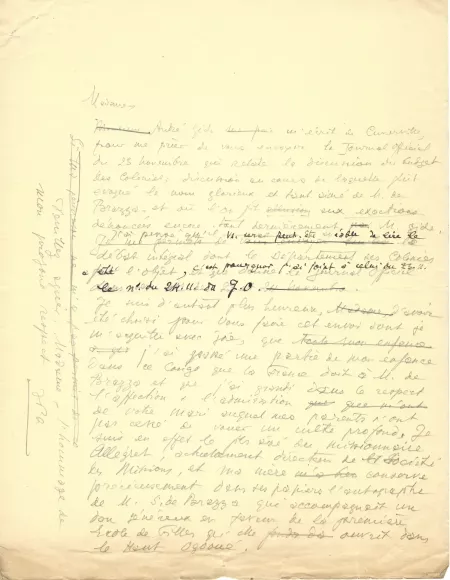 Madame
André Gide m'écrit de Cuverville
pour me prier de vous envoyer le Journal Officiel
du 23 novembre qui relate la discussion du budget
des Colonies, discussion au cours de laquelle fut
évoqué le nom glorieux et tant aimé de M. de
Brazza et où l'on fit allusion aux exactions
dénoncées encore, tout dernièrement M. Gide.
J'ai pensé que vous seriez peut-être de lire le
débat intégral dont le Département des Colonies
a été l'objet, c'est pourquoi j'ai joint à celui du 23
le nº. du 24 du J.O.
Je suis d'autant plus heureux, Madame d'avoir
été choisi pour vous faire cet envoi dont je
m'acquitte avec joie, que
j'ai passé une partie de mon enfance
dans ce Congo que la France doit à M. de
Brazza et que j'ai grandi dans le respect
l'affection et l'admiration
de votre mari auquel mes parents n'ont
pas cessé de vouer un culte profond. Je
suis en effet le fils aîné du missionnaire
Allégret, actuellement directeur de la Société
des Missions, et ma mère conserve
précieusement dans ses papiers l'autographe
de M. S. de Brazza qui accompagnait un
don généreux en faveur de la première
Ecole de Filles qu'elle ouvrit dans
le Haut Ogooué.
Veuillez agréer, Madame, l'hommage de
mon profond respect